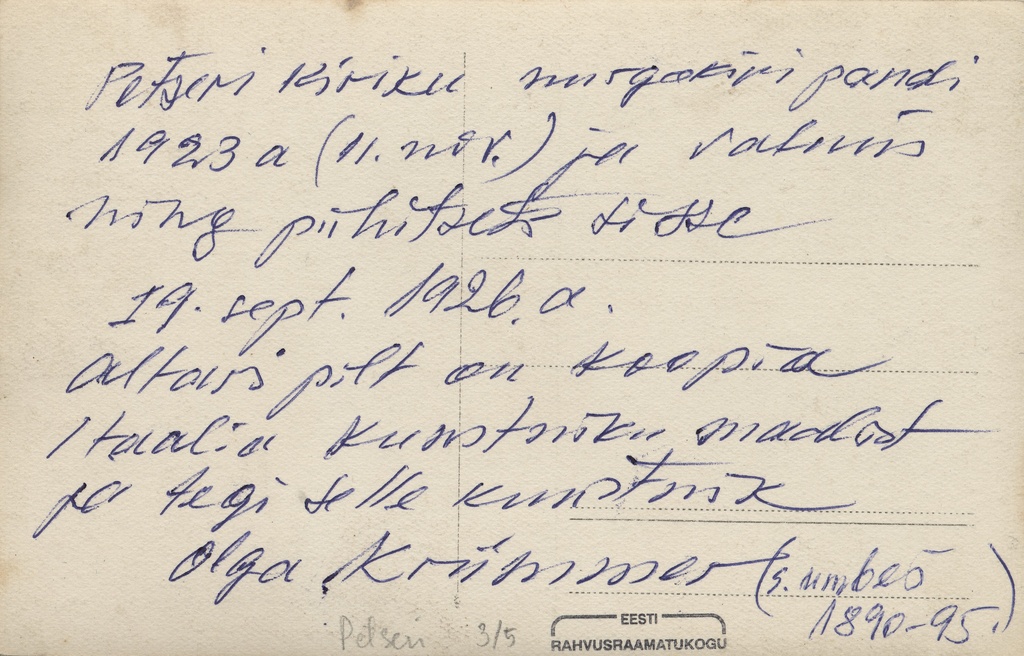 Petseri Kiriku nurgakivi pandi
1923 a (11. nov.) ja valmis
ning pühitseti sisse
19. sept. 1926. a.
Altari pilt on koopia
Itaalia kunstniku maalist
ja tegi selle kunstnik
Olga Krümmer (s. umbes
1890-95.)
Petseri 3/5
EESTI
RAHVUSRAAMATUKOGU